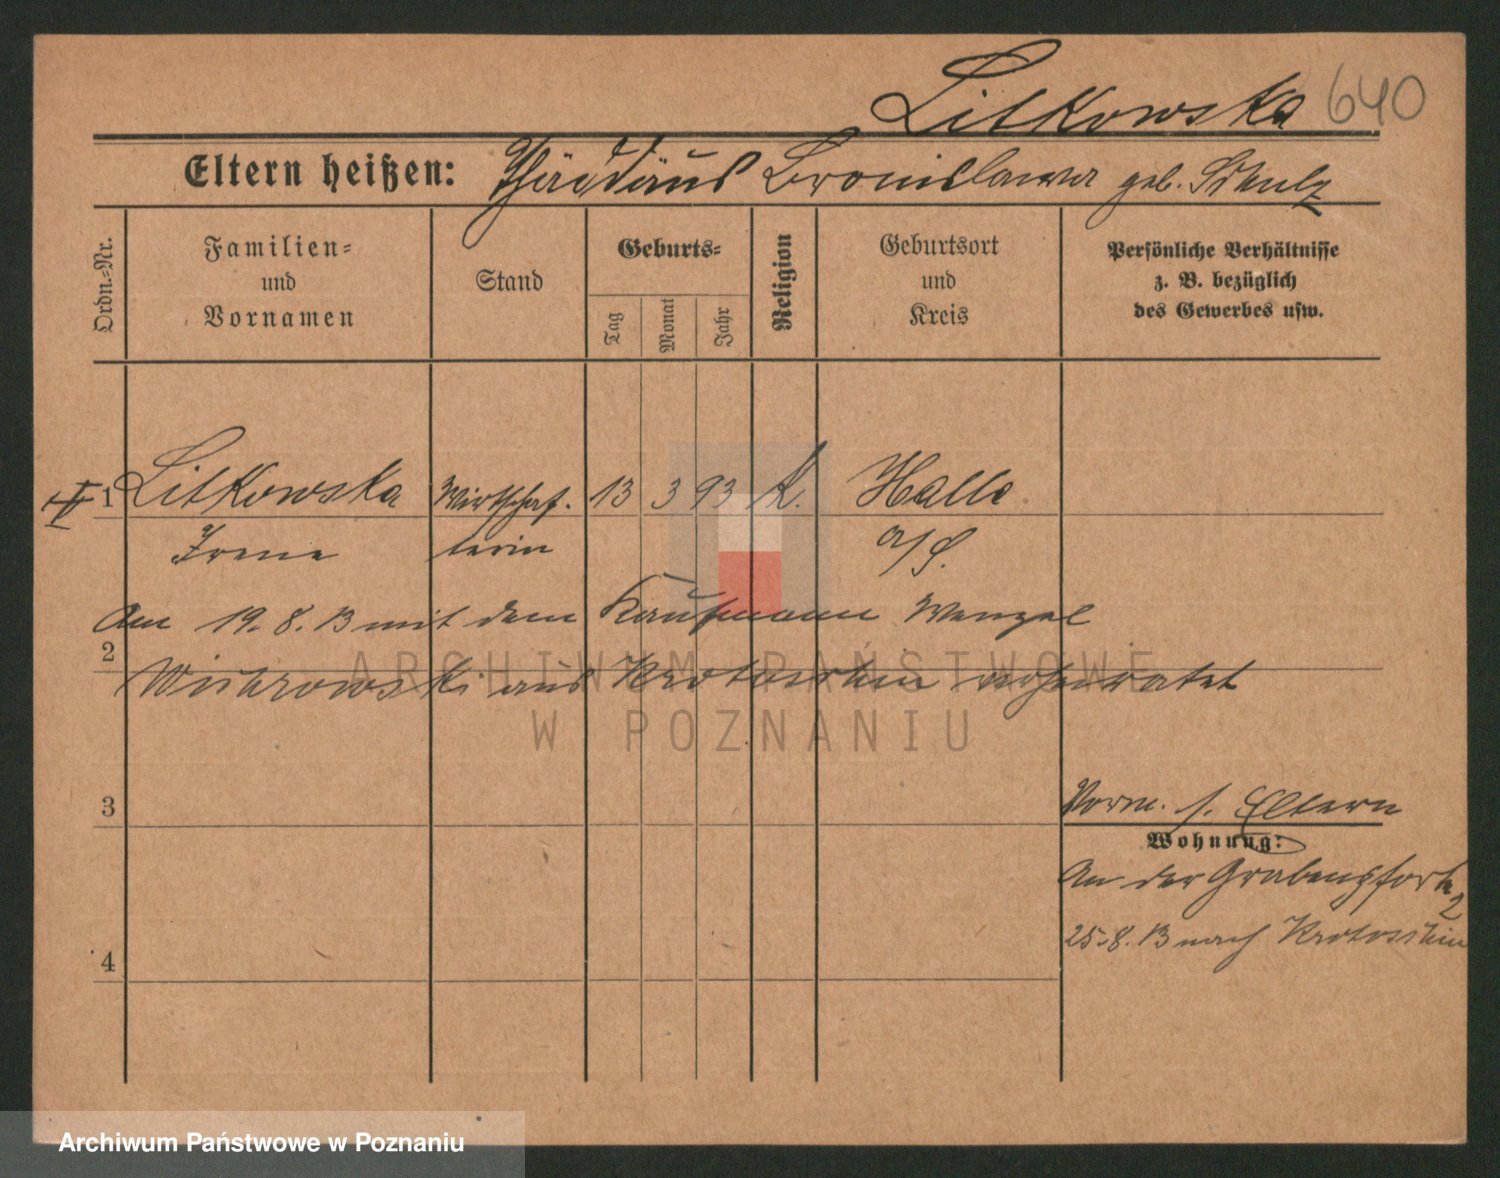 Litkowska 640
Eltern heißen: Thädäus Bronislawa geb. Schulz
Ordn.-Nr.
Familien-
und
Vornamen
Stand
Geburts-
Tag
Monat
Jahr
Religion
Geburtsort
und
Kreis
Persönliche Verhältnisse
z. B. bezüglich
des Gewerbes usw.
1 Litkowska Wirtschaf- 13 3 93 k. Halle
Irene terin a/S.
Am 19. 8. 13 mit dem Kaufmann Wenzel
2
aus Krotoschin verheiratet
ARCHIWUM PAŃSTWOWE
W POZNANIU
3
Vorm. s. Eltern
Wohnung:
An der Grabenpforte 2
25. 8. 13 nach Krotoschin
4
Archiwum Państwowe w Poznaniu